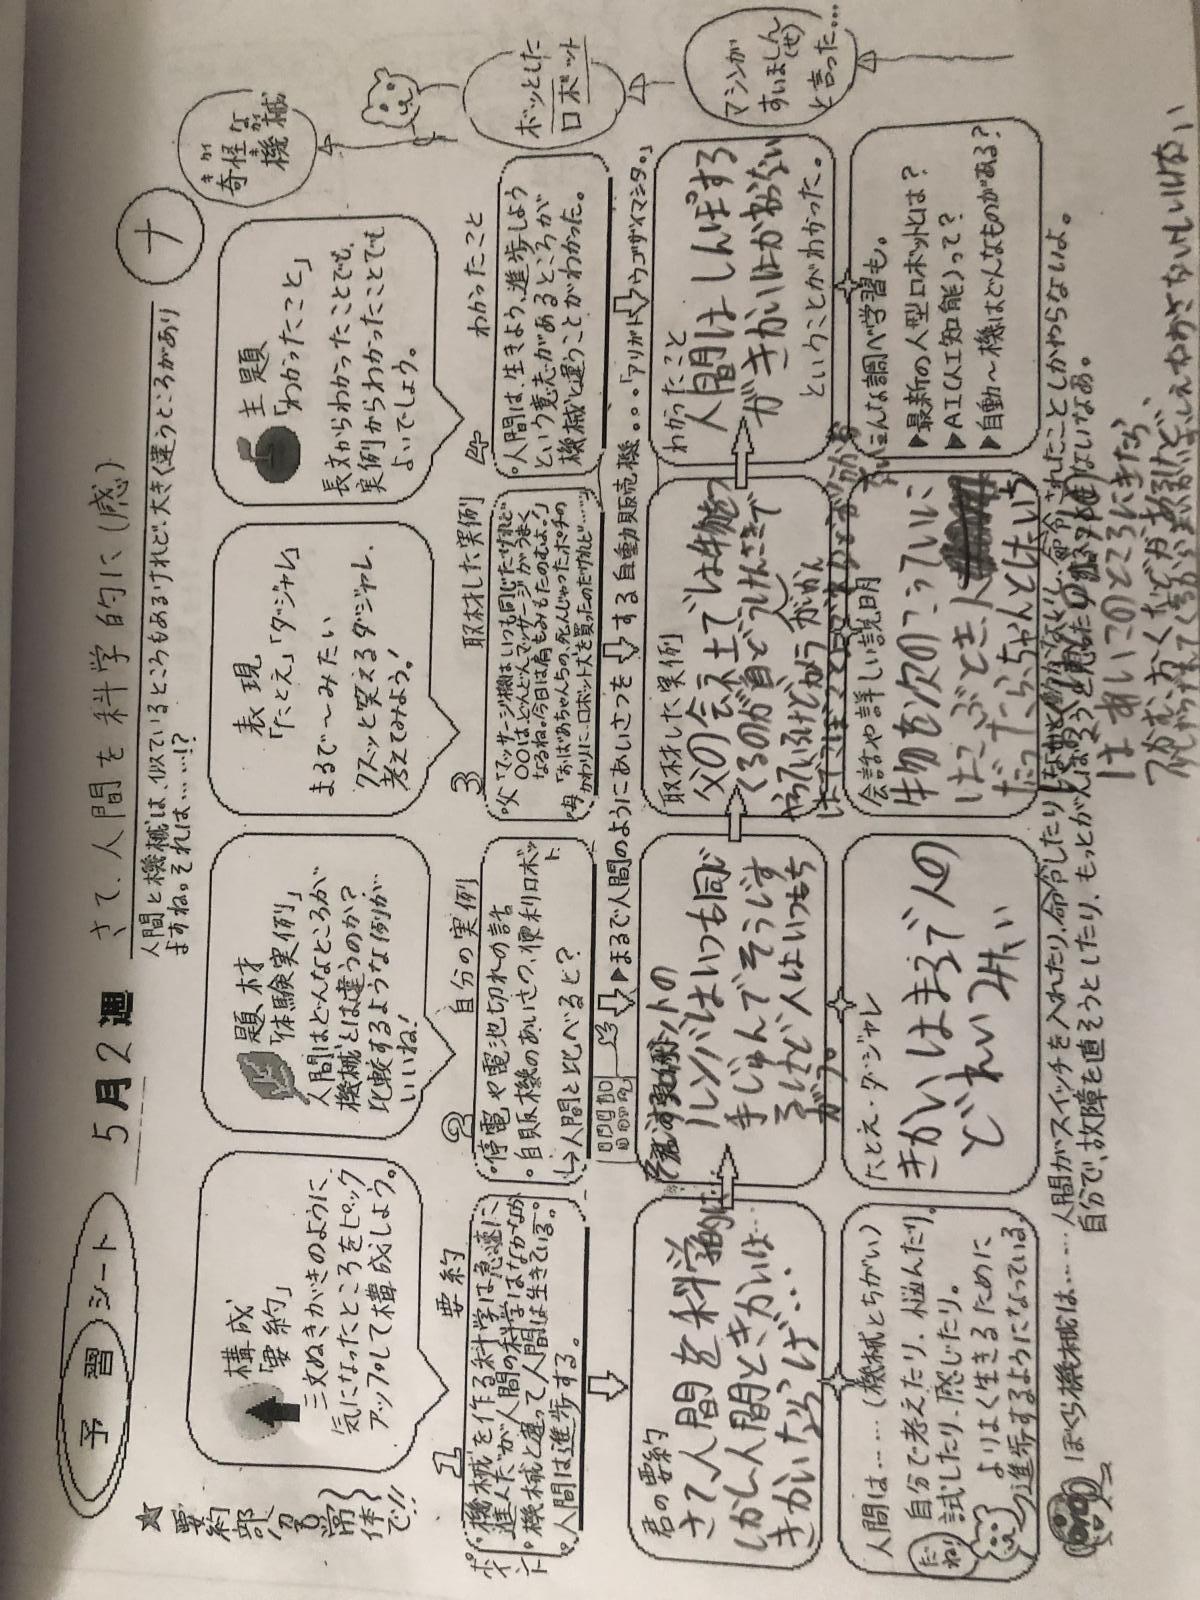 予習シート
5月2週
さて、人間を科学的に(感)
ナ
人間と機械は、似ているところもあるけれど、大きく違うところがあり
ますね。それは……!?
奇怪な機械
★要約部分は常体で!!
構成
「要約」
三文ぬきがきのように
気になったところをピック
アップして構成しよう。
題材
「体験実例」
人間はどんなところが
機械とは違うのか?
比較するような例が
いいね!
表現
「たとえ」「ダジャレ」
まるで〜みたい
クスッと笑えるダジャレ、
考えてみよう!
主題
「わかったこと」
長文からわかったことでも、
実例からわかったことでも
よいでしょう。
ボッとした
ロボット
1 要約
ポイント
・機械を作る科学は急速に
進んだが人間の科学はなかなか
・機械と違って人間は生きている。
・人間は進歩する。
2 自分の実例
・停電や電池切れの話
・自販機のあいさつ、便利ロボット
↳人間と比べると?
3 取材した実例
・父「マッサージ機はいつも同じだけれど
〇〇はどんどんマッサージがうまく
なるね。今日は肩もみもたのむよ。」
・母「おばあちゃんちの、死んじゃったポチの
かわりに、ロボット犬を買ったのだけれど……」
4 わかったこと
・人間は、生きよう、進歩しよう
という意志があるところが
機械と違うことがわかった。
▶まるで人間のようにあいさつをする自動販売機。。。「アリガトウゴザイマシタ。」
マシンが
すいましん(せ)
と言った…
君の要約
さて、人間を科学的に…
しかし人間ときかいは…
きかいたらげ…
君の実例
ルンバはいつも同じ
手じゅんでそうじす
るけど人はいつもち
がう。
取材した実例
父の会社では牛物をつ
くるのが自どうしけんさきで
わかったこと
人間はしんぽする
がきかいはかわらない
ということがわかった。
人間は……(機械とちがい)
自分で考えたり、悩んだり。
試したり、感じたり。
よりよく生きるために
進歩するようになっている
だね!
たとえ・ダジャレ
きかいはまるで人の
どれいみたい
会話や詳しい説明
こんな調べ学習も。
▶最新の人型ロボットとは?
▶AI(人工知能)って?
▶自動〜機はどんなものがある?
ぼくら機械は……人間がスイッチを入れたり、命令したりしないと動かないし、命令されたことしかやらないよ。
自分で、故障を直そうとしたり、もっとがんばろうと思ったりはしないなあ。